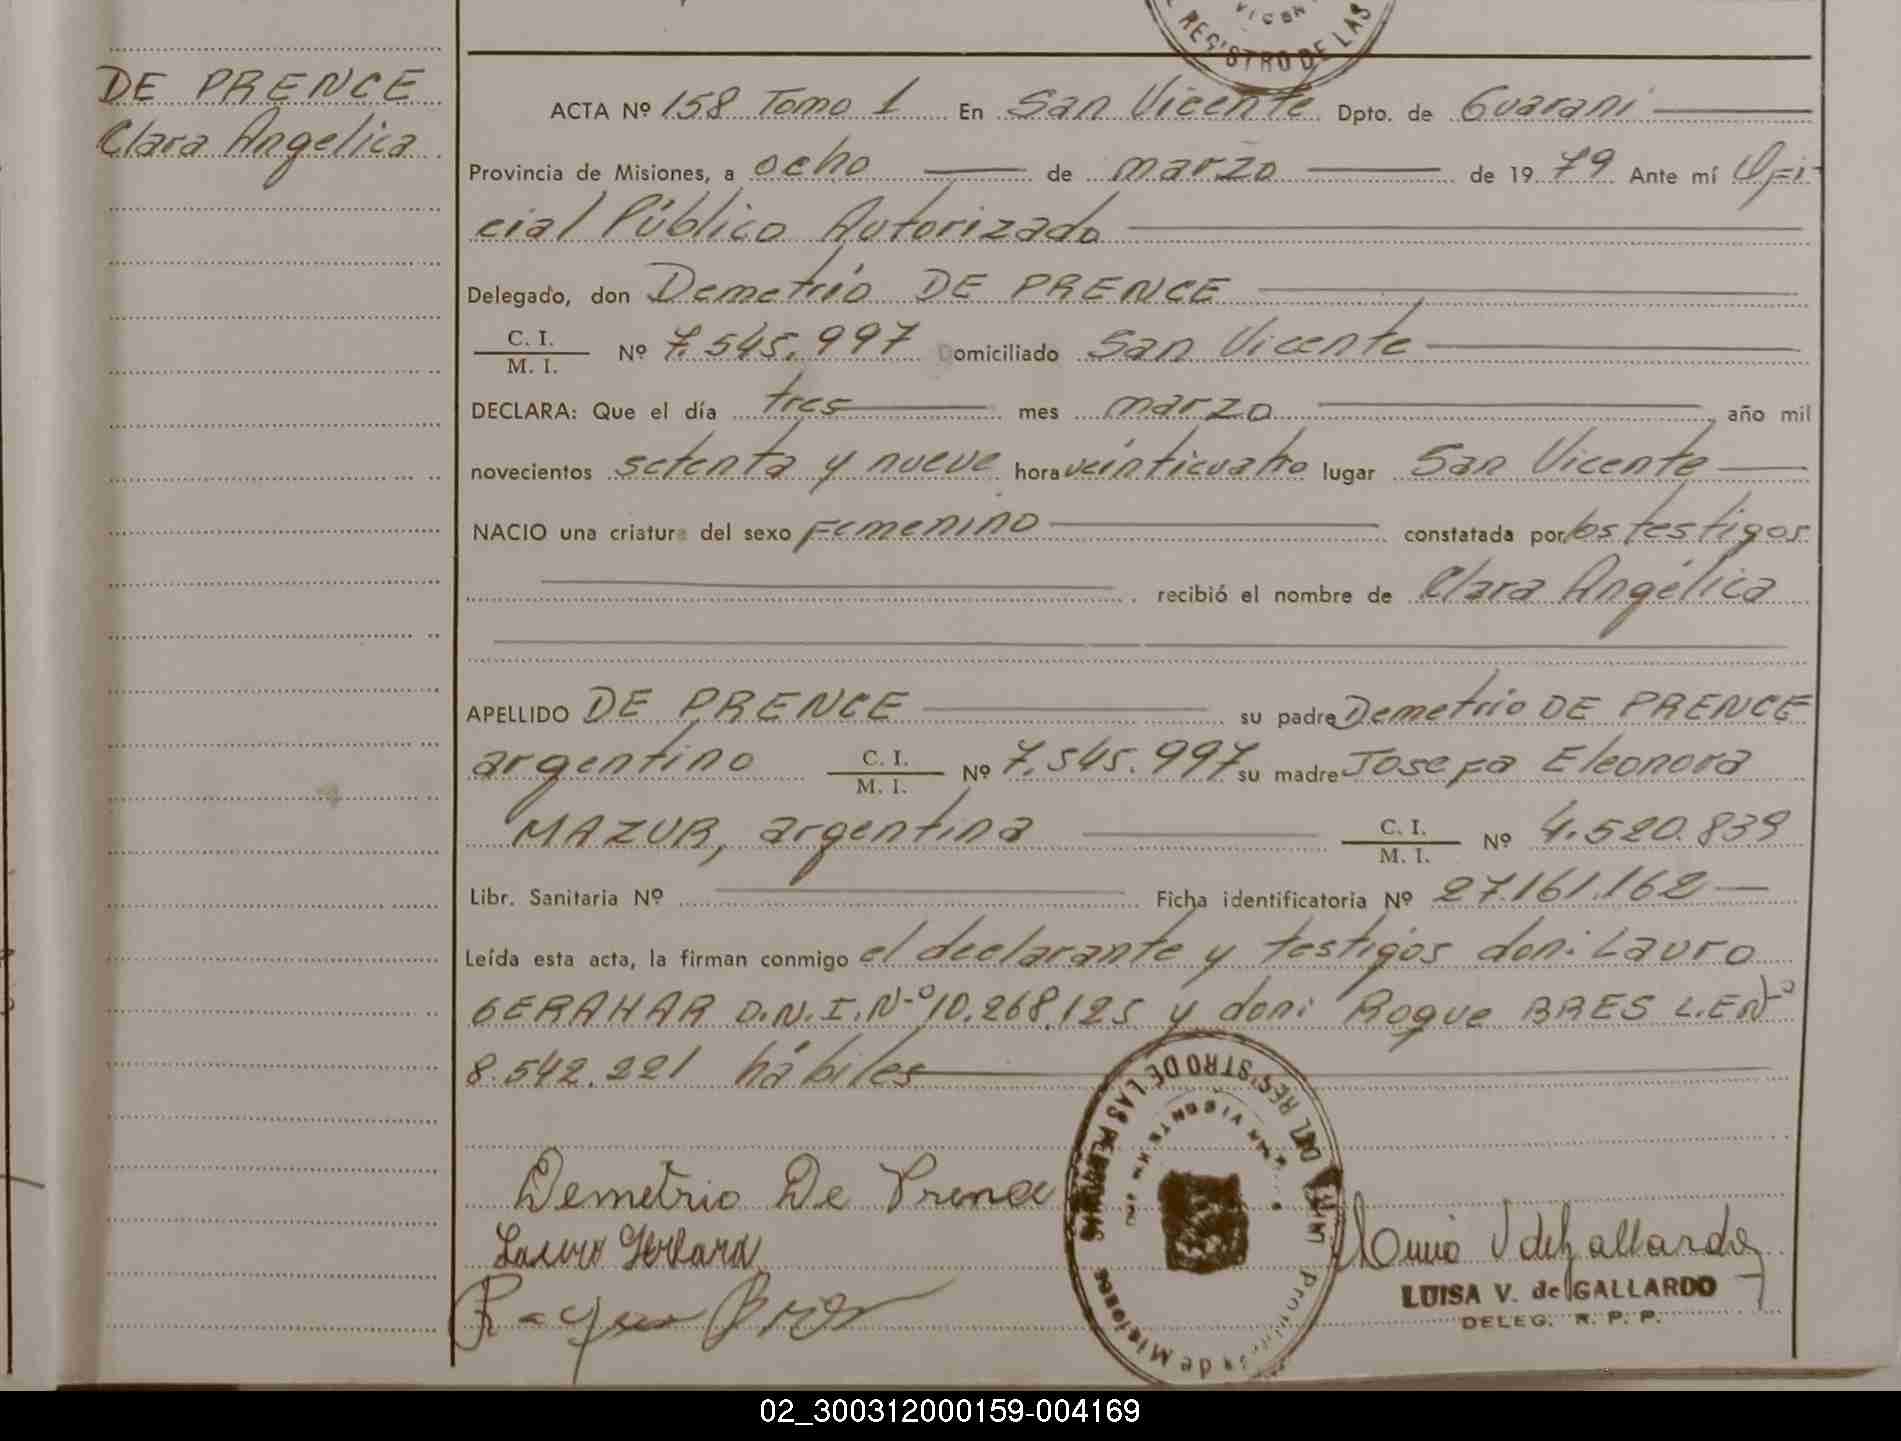 DE PRENCE
Clara Angelica
VICEN
REGISTRO DE LAS
ACTA Nº 158 Tomo 1 En San Vicente Dpto. de Guaraní
Provincia de Misiones, a ocho de marzo de 1979 Ante mí Ofi-
cial Público Autorizado
Delegado, don Demetrio DE PRENCE
C. I.
M. I. Nº 7.545.997 Domiciliado San Vicente
DECLARA: Que el día tres mes marzo año mil
novecientos setenta y nueve hora veinticuatro lugar San Vicente
NACIO una criatura del sexo Femenino constatada por los testigos
recibió el nombre de Clara Angélica
APELLIDO DE PRENCE su padre Demetrio DE PRENCE
argentino C. I.
M. I. Nº 7.545.997 su madre Josefa Eleonora
MAZUR, argentina C. I.
M. I. Nº 4.520.839
Libr. Sanitaria Nº Ficha identificatoria Nº 27.161.162
Leída esta acta, la firman conmigo el declarante y testigos don: Lauro
GERAHAR D.N.I.Nº 10.268.125 y don: Roque BRES L.E Nº
8.542.221 hábiles
DEL REGISTRO DE LAS PERSONAS
SAN VICENTE
Provincia de Misiones
Demetrio De Prence
Lauro
Roque Bres
Luisa V de Gallardo
LUISA V. de GALLARDO
DELEG. R. P. P.
02_300312000159-004169